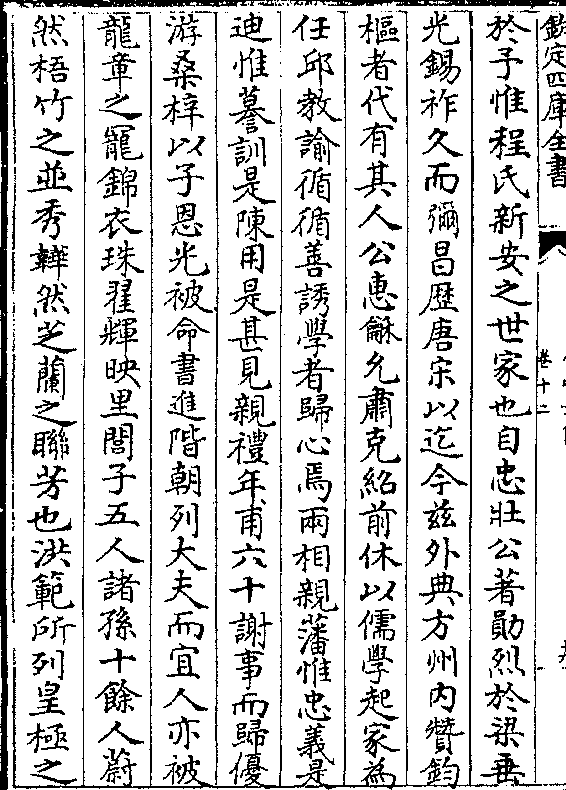 欽定四庫全書
卷十二
於予惟程氏新安之世家也自忠壯公著勛烈於梁垂
光錫祚久而彌昌歴唐宋以迄今兹外典方州内贊鈞
樞者代有其人公惠龢允肅克紹前休以儒學起家為
任邱教諭循循善誘學者歸心焉兩相親藩惟忠義是
迪惟謩訓是陳用是甚見親禮年甫六十謝事而歸優
游桑梓以子恩光被命書進階朝列大夫而宜人亦被
龍章之寵錦衣珠翟輝映里閭子五人諸孫十餘人蔚
然梧竹之並秀韡然芝蘭之聯芳也洪範所列皇極之